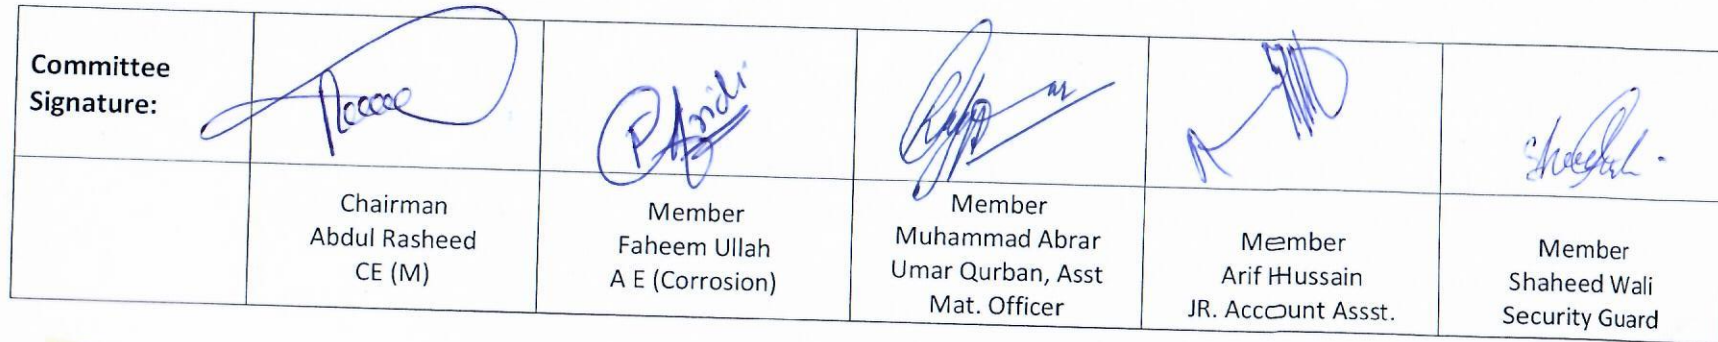 Committee
Signature:
Chairman
Abdul Rasheed
CE (M)
Member
Faheem Ullah
A E (Corrosion)
Member
Muhammad Abrar
Umar Qurban, Asst
Mat. Officer
Member
Arif Hussain
JR. Account Assst.
Member
Shaheed Wali
Security Guard